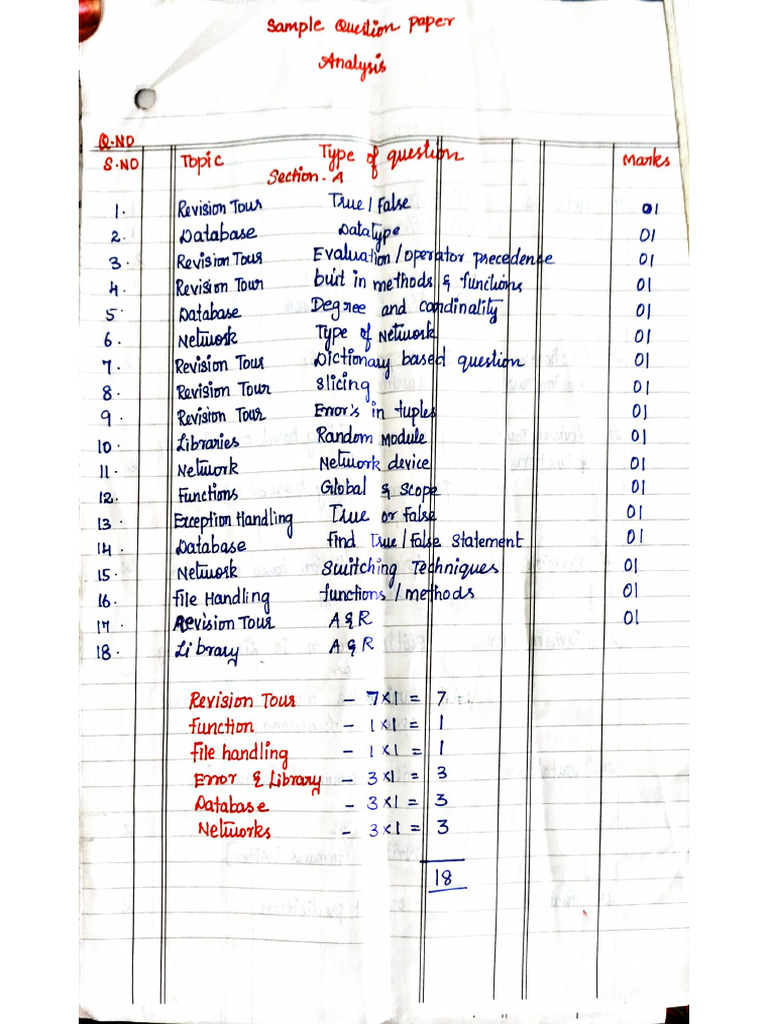 Sample Question Paper
Analysis
Q.NO
S.NO Topic Type of question Marks
Section - A
1. Revision Tour True / False 01
2. Database Datatype 01
3. Revision Tour Evaluation / operator precedence 01
4. Revision Tour buirt in methods & functions 01
5. Database Degree and cardinality 01
6. Network Type of Network 01
7. Revision Tour Dictionary based question 01
8. Revision Tour Slicing 01
9. Revision Tour Error's in tuples 01
10. Libraries Random Module 01
11. Network Network device 01
12. Functions Global & Scope 01
13. Exception Handling True or False 01
14. Database Find True / False Statement 01
15. Network Switching Techniques 01
16. File Handling functions / methods 01
17. Revision Tour A & R 01
18. Library A & R
Revision Tour - 7 x 1 = 7
function - 1 x 1 = 1
file handling - 1 x 1 = 1
Error & Library - 3 x 1 = 3
Database - 3 x 1 = 3
Networks - 3 x 1 = 3
18